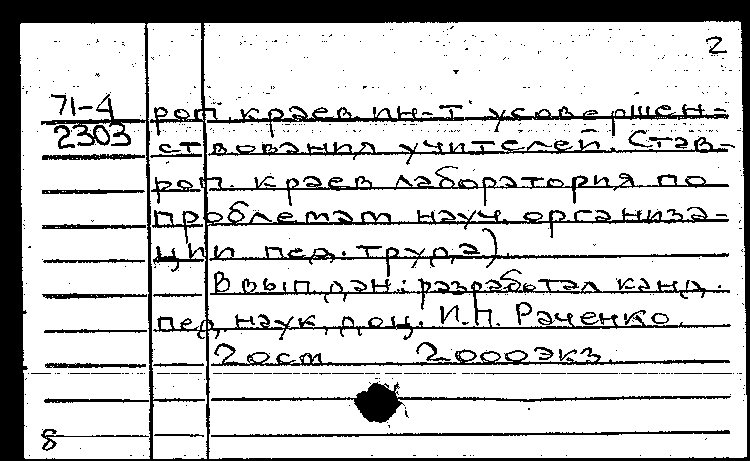 2
71-4 роп. краев. ин-т усовершен-
2303 ствования учителей. Став-
роп. краев лаборатория по
проблемам науч. организа-
ции пед. труда).
В вып. дан.: разработал канд.
пед. наук, доц. И.П. Раченко.
2000 экз.
8